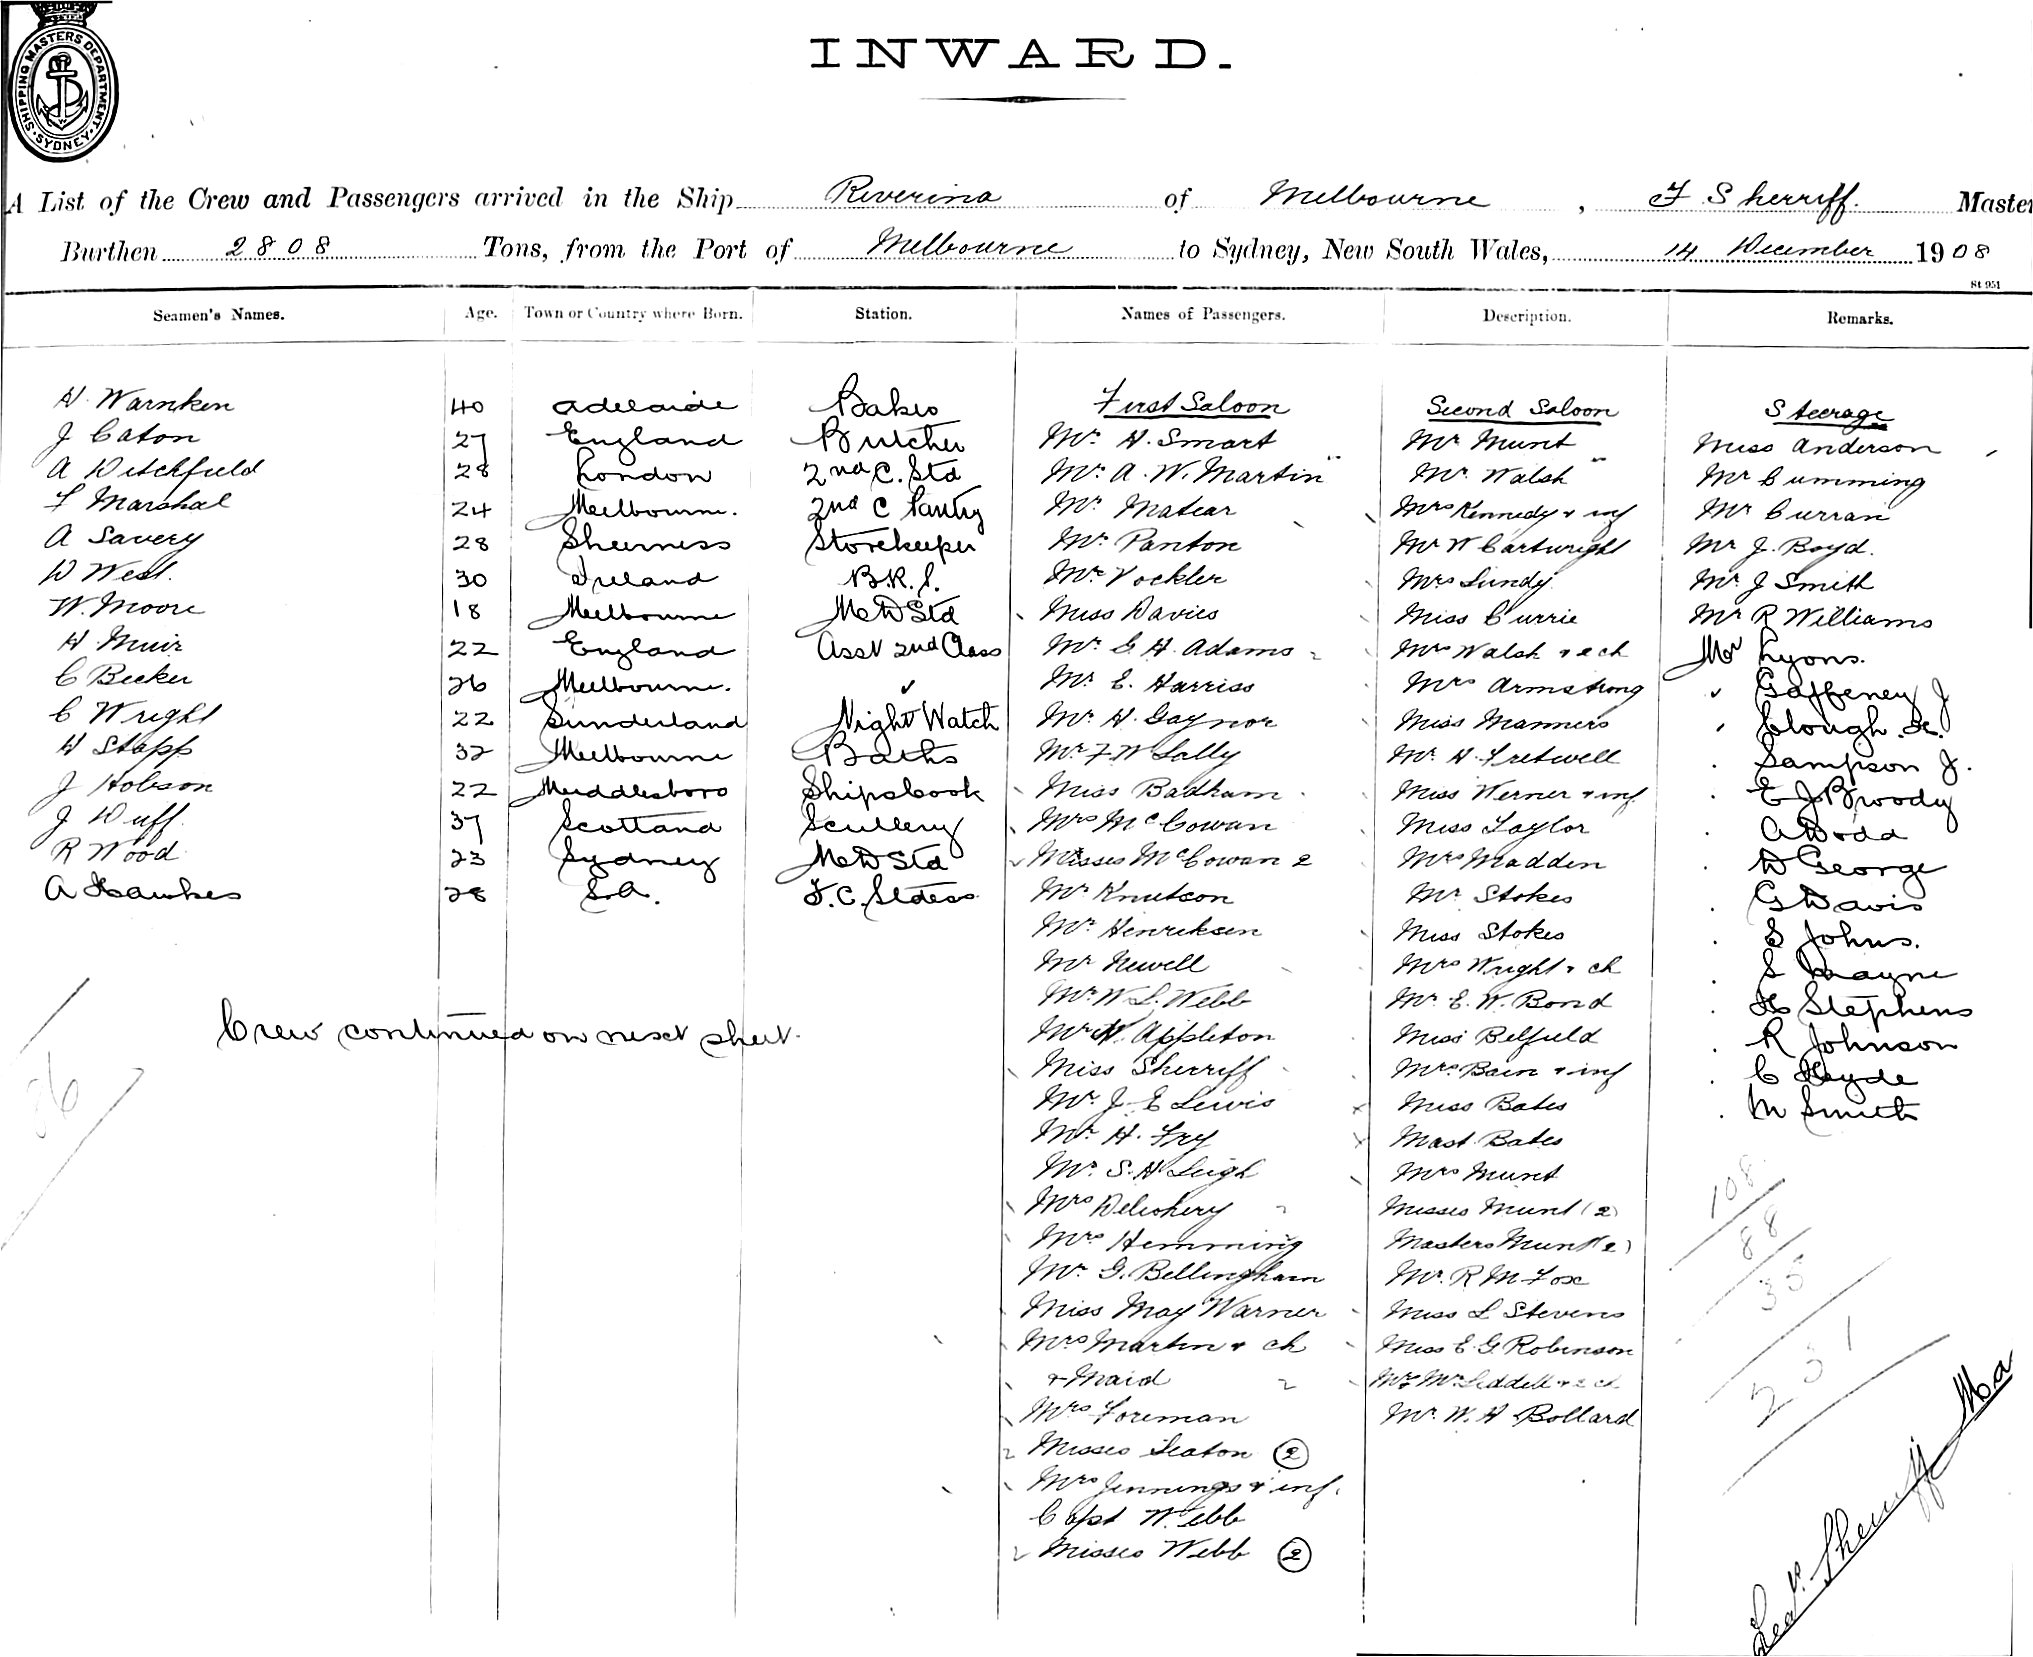 SHIPPING MASTERS DEPARTMENT · SYDNEY ·
INWARD.
A List of the Crew and Passengers arrived in the Ship Riverina of Melbourne, F Sherriff. Master
Burthen 2808 Tons, from the Port of Melbourne to Sydney, New South Wales, 14 December 1908
St 951
Seamen's Names. Age. Town or Country where Born. Station. Names of Passengers. Description. Remarks.
H. Warnken 40 Adelaide Baker First Saloon Second Saloon Steerage
J Caton 27 England Butcher Mr. H. Smart Mr Munt Miss Anderson
A Ditchfield 28 London 2nd C. Std Mr. A. W. Martin Mr. Walsh Mr Cumming
F Marshal 24 Melbourne. 2nd C Pantry Mr. Matear Mrs Kennedy & inf Mr Curran
A Savery 28 Sheerness Storekeeper Mr. Panton Mr W Cartwright Mr J. Boyd.
D West. 30 Ireland B.R.S. Mr. Vockler Mrs Lundy Mr. J Smith
W. Moore 18 Melbourne M&D Std Miss Davies Miss Currie Mr R Williams
H Muir 22 England Asst 2nd Class Mr. G. H. Adams Mrs Walsh & 2 ch Mr Lyons.
C Becker 26 Melbourne. " Mr. E. Harriss Mrs Armstrong " Gaffeney J
C Wright 22 Sunderland Night Watch Mr. H. Gaynor Miss Manners Clough
H Stapp 32 Melbourne Baths Mr. F W Lally Mr. H. Fretwell Sampson J.
J Hobson 22 Middlesboro Ships Cook Miss Badham Miss Verner & inf E J Broody
J Duff. 37 Scotland Scullery Mrs McCowan Miss Taylor A Dodd
R Wood 23 Sydney M&D Std Misses McCowan 2 Mrs Madden D George
A Hawkes 28 S.A. F.C. Stdess Mr. Knutson Mr Stokes G Davis
Mr. Henriksen Miss Stokes S Johns.
Mr Newell Mrs Wright & ch S Mayne
Mr. W. L. Webb Mr. E. W. Bond H Stephens
Crew continued on next sheet. Mr H. Appleton Miss Belfield R Johnson
86 Miss Sherriff Mrs Bain & inf C Heyde
Mr. J E Lewis Miss Bates M Smith
Mr. H. Fry Mast Bates
Mr. S. H Leigh Mrs Munt 108
Mrs Delohery Misses Munt (2)
Mrs Hemming Masters Munt (2) 88
Mr. G. Bellingham Mr. R M Fox 35
Miss May Warner Miss L Stevens
Mrs Martin & ch Miss E. G. Robinson
& Maid & 2 ch 231
Mrs Foreman Mr. W. H Bollard
Misses Seaton 2
Mrs Jennings & inf.
Capt Webb
Misses Webb 2
Sherriff Ma